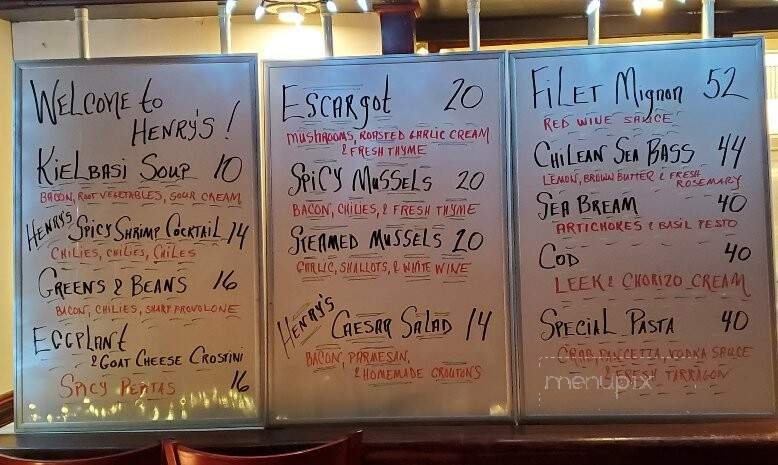 WELCOME to
HENRY'S !
KIELBASI SOUP 10
BACON, ROOT VEGETABLES, SOUR CREAM
HENRY'S SPICY SHRIMP COCKTAIL 14
CHILIES, CHILIES, CHILES
GREENS & BEANS 16
BACON, CHILIES, SHARP PROVOLONE
EGGPLANT
& GOAT CHEESE CROSTINI
SPICY PEPITAS 16
ESCARGOT 20
MUSHROOMS, ROASTED GARLIC CREAM
& FRESH THYME
SPICY MUSSELS 20
BACON, CHILIES, & FRESH THYME
STEAMED MUSSELS 20
GARLIC, SHALLOTS, & WHITE WINE
HENRY'S CAESAR SALAD 14
BACON, PARMESAN,
& HOMEMADE CROUTONS
FILET MIGNON 52
RED WINE SAUCE
CHILEAN SEA BASS 44
LEMON, BROWN BUTTER & FRESH
ROSEMARY
SEA BREAM 40
ARTICHOKES & BASIL PESTO
COD 40
LEEK & CHORIZO CREAM
SPECIAL PASTA 40
CRAB, PANCETTA, VODKA SAUCE
& FRESH TARRAGON
menupix